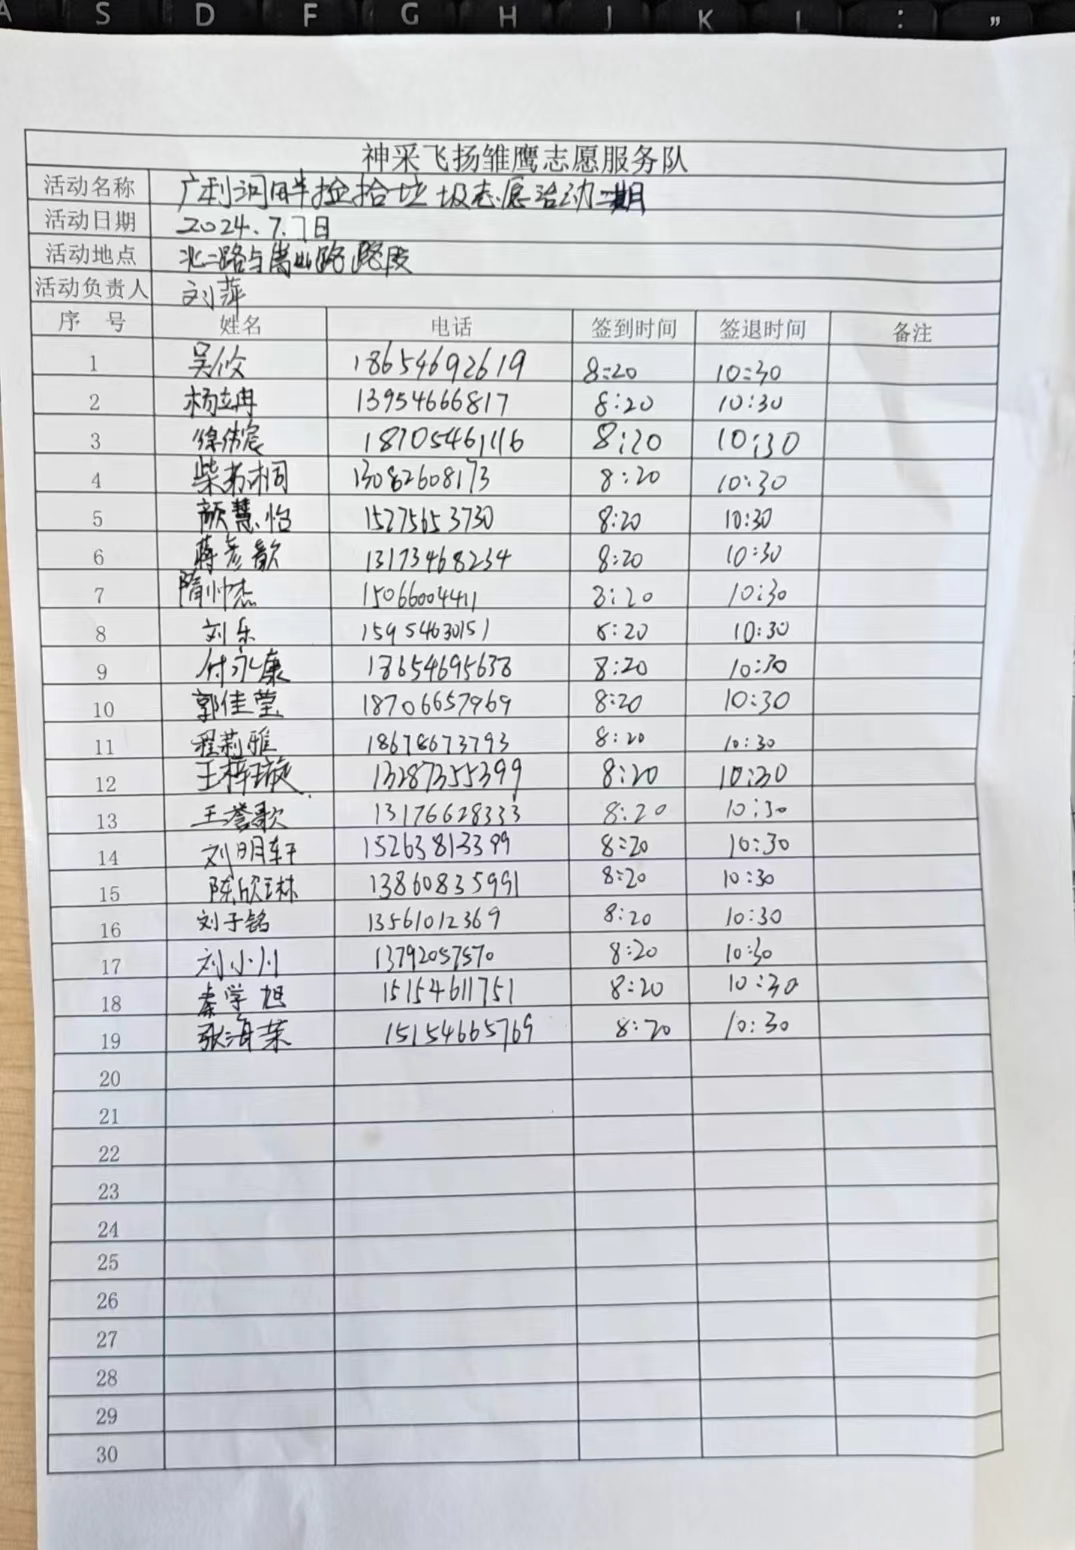 A S D F G H J K L : "
神采飞扬雏鹰志愿服务队
活动名称 广利河畔捡拾垃圾志愿活动二期
活动日期 2024.7.7日
活动地点 北二路与嵩山路路段
活动负责人 刘萍
序号 姓名 电话 签到时间 签退时间 备注
1 吴攸 18654692619 8:20 10:30
2 杨立冉 13954666817 8:20 10:30
3 徐伟宸 18705461116 8:20 10:30
4 柴若桐 13082608173 8:20 10:30
5 颜慧怡 15275653730 8:20 10:30
6 蒋彦歆 13173468234 8:20 10:30
7 隋帅杰 15066004411 8:20 10:30
8 刘乐 15954630151 8:20 10:30
9 付永康 18654695638 8:20 10:30
10 郭佳莹 18706657969 8:20 10:30
11 程莉雅 18678673793 8:20 10:30
12 王梓璇 13287355399 8:20 10:30
13 王誉歌 13176628333 8:20 10:30
14 刘明轩 15263813399 8:20 10:30
15 陈欣琳 13860835991 8:20 10:30
16 刘子铭 13561012369 8:20 10:30
17 刘小川 13792057570 8:20 10:30
18 秦学旭 15154611751 8:20 10:30
19 张海荣 15154665769 8:20 10:30
20
21
22
23
24
25
26
27
28
29
30